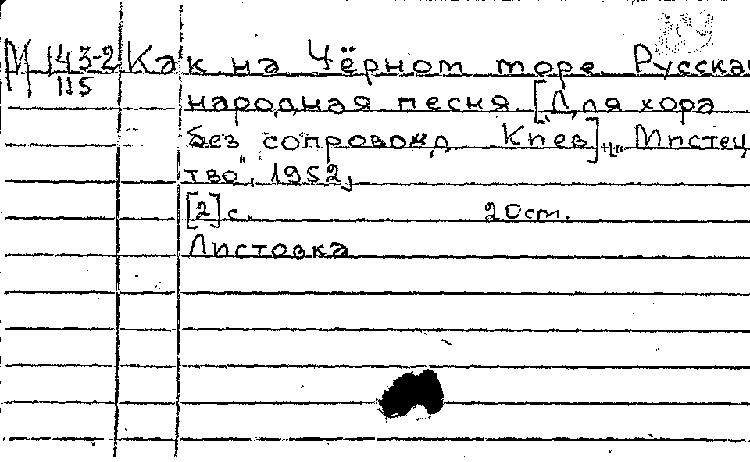 М 143-2 Как на Чёрном море. Русская
115
народная песня. [Для хора
без сопровожд. Киев], „Мистец
тво", 1952,
[2] с. 20 см.
Листовка